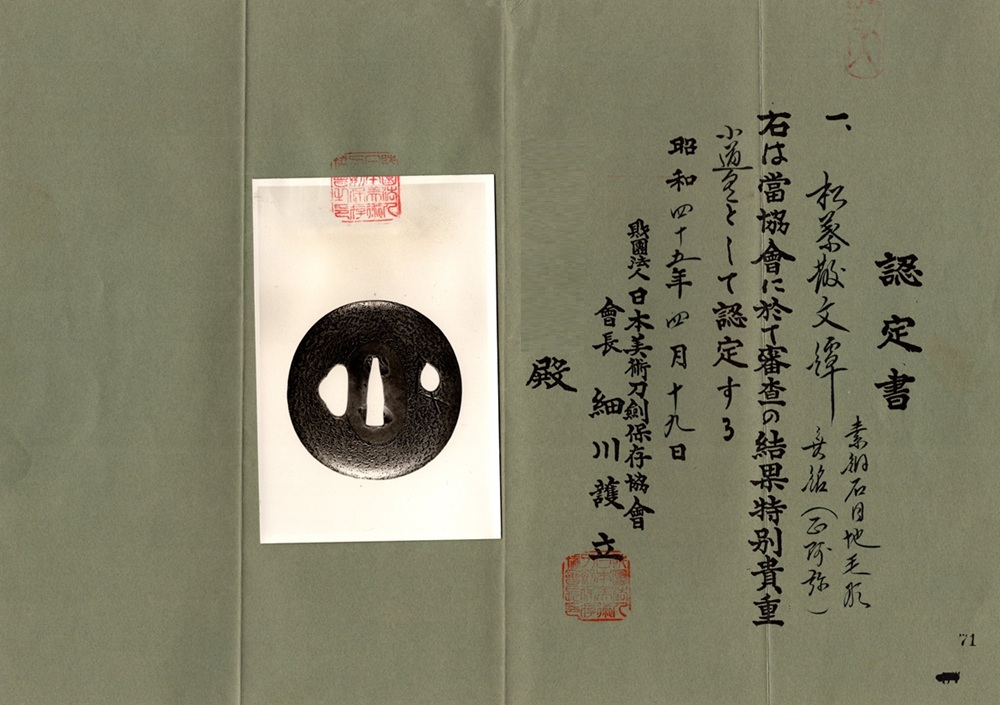 認定書
一、松葉散文鐔
素銅石目地毛彫
無銘（正阿弥）
右は當協會に於て審査の結果特別貴重
小道具として認定する
昭和四十五年四月十九日
財團法人日本美術刀劍保存協會
會長 細川護立
殿
71